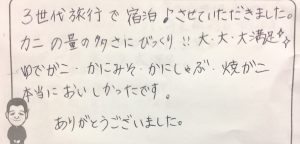 3世代旅行で宿泊♪させていただきました。
カニの量の多さにびっくり!!大・大・大満足✨
ゆでがに・かにみそ・かにしゃぶ・焼がに
本当においしかったです。
ありがとうございました。